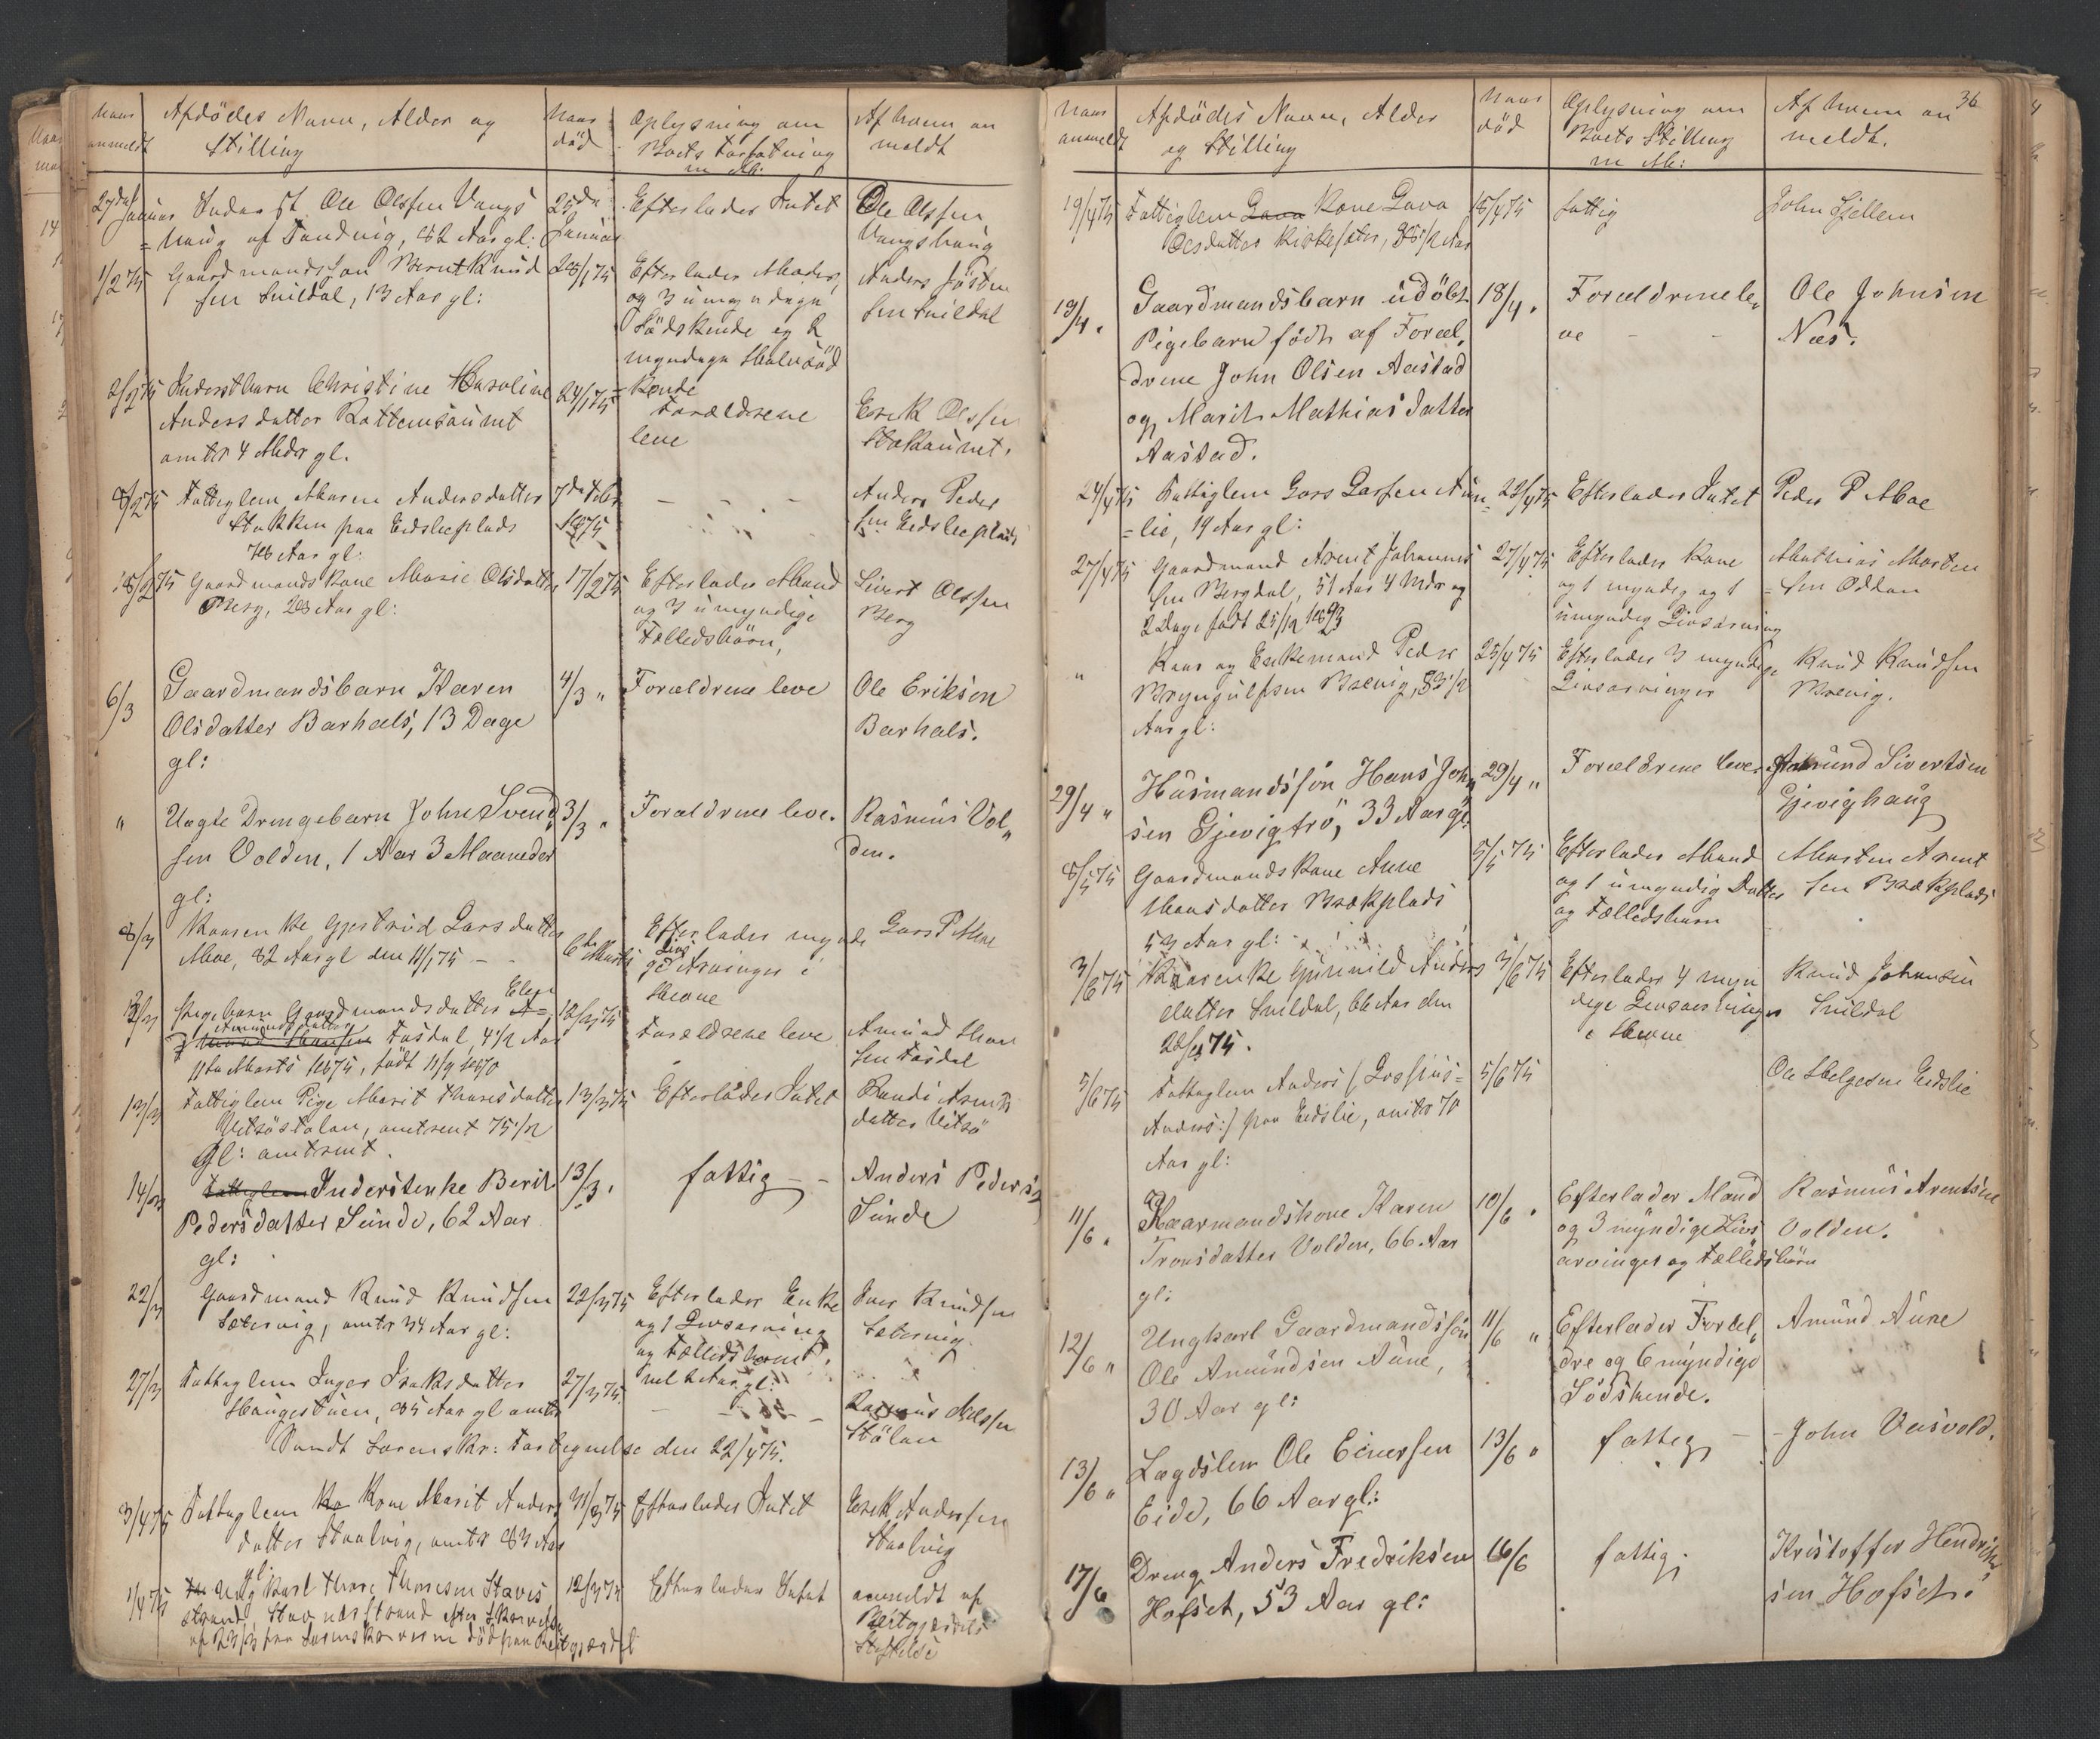 Naar
anmeldt
Afdödes Navn, Alder og
Stilling
Naar
död
Oplysning om
Boets Forfatning
m M:
Af hvem an
meldt
27de Januar
Inderst Ole Olssen Vangs
=haug af Tandvig, 82 Aar gl:
25de
Januar
Efterlader Intet
Ole Olssen
Vangshaug
1/2 75
Gaardmandssön Bernt Knud
sen Snildal, 13 Aar gl:
28/1 75
Efterlader Moder
og 3 umyndige
Södskende og 2
myndige Halvsöd
=skende
Anders
sen Snildal
2/2 75
Inderstbarn Christine Karoline
Andersdatter Rottemsaunet
omtr 4 Mdr gl.
24/1 75
Forældrene
leve
Erik Olssen
Stokaunet.
8/2 75
Fattiglem Maren Andersdatter
Stokken paa Eidslieplads
76 Aar gl:
7de Febr
1875
- - -
Anders Peder
sen Eidslieplads
18/2 75
Gaardmandskone Marie Olsdatter
Berg, 28 Aar gl:
17/2 75
Efterlader Mand
og 3 umyndige
Fælledsbörn,
Sivert Olssen
Berg
6/3
Gaardmandsbarn Karen
Olsdatter Barhals, 13 Dage
gl:
4/3 "
Forældrene leve
Ole Eriksen
Barhals.
"
Uægte Drengebarn John Svend,
sen Volden, 1 Aar 3 Maaneder
gl:
3/3 "
Forældrene leve.
Rasmus Vol,,
den.
8/3
Kaarenke Gjertrud Larsdatter
Moe, 82 Aar gl den 11/1 75 -
6te Marts
Efterlader mynde
Livs
ge Arvinger i
Hevne
Lars P Moe
12/3
Pigebarn Gaardmandsdatter A=
Elen
Amundsdatter
Fosdal, 4 1/2 Aar
11te Marts 1875, födt 11/9 1870
12/3 75
Forældrene leve
Amund Han
sen Fosdal
13/3
Fattiglem Pige Marit Thorisdatter
Vitsöstölan, omtrent 75 1/2
gl: omtrent.
13/3 75
Efterlader Intet
Randi Arnts
datter Vitsö
14/3
Fattiglem Inderstenke Berit
Pedersdatter Sunde, 62 Aar
gl:
13/3 "
fattig - -
Anders Peders,
Sunde
22/3
Gaardmand Knud Knudsen
Sætervig, omtr 34 Aar gl:
22/3 75
Efterlader Enke
og 1 Livsarving
og Fælledsbarn,
vel 2 Aar gl:
Iver Knudsen
Sætervig
27/3
Fattiglem Inger Isaksdatter
Haugestuen, 85 Aar gl omtr
Sendt Sorenskr: Fortegnelse den 22/4 75.
27/3 75
- - -
Rasmus Nilssen
Stölan
3/4 75
Fattiglem Ko Kone Marit Anders
datter Staalvig, omtr 83 Aar
gl:
31/3 75
Efterlader Intet
Erik Andersen
Staalvig
1/4 75
Ungkarl Thore Thomesen Staves
strand, Stavnesstrand efter Skrivelse
af 23/3 fra Sorenskriveren död paa Reitgjærdet
12/3 75
Efterlader Intet
anmeldt af
Reitgjerdets
Stiftelse
36
Naar
anmeldt
Afdödes Navn, Alder
og Stilling
Naar
död
Oplysning om
Boets Stilling
m M:
Af hvem an
meldt.
19/4 75
Fattiglem Lava Kone Lava
Olsdatter Kirksæter, 88 1/2 Aar
18/4 75
fattig
John Gjellem
19/4 "
Gaardmandsbarn udöbt
Pigebarn födt af Foræl,
drene John Olsen Aastad
og Marit Mathiasdatter
Aastad.
18/4 "
Forældrene le,
ve - -
Ole Johnsen
Næs.
24/4 75
Fattiglem Lars Larssen Aun
=lie, 19 Aar gl:
22/4 75
Efterlader Intet
Peder P Moe
27/4 75
Gaardmand Arent Johannes
sen Bergdal, 51 Aar 4 Mdr og
2 Dage födt 25/12 1823
27/4 75
Efterlader Kone
og 1 myndig og 1
umyndig Livsarving
Mathias Morten
=sen Oddan
"
Kaar og Enkemand Peder
Bryngulfsen Brevig, 83 1/2
Aar gl:
25/4 75
Efterlader 3 myndige
Livsarvinger
Knud Knudsen
Brevig.
29/4 "
Husmandssön Hans John,
sen Gjevigtrö, 33 Aar gl:
29/4 "
Forældrene lever
Amund Sivertsen
Gjevighaug
8/5 75
Gaardmandskone Anne
Hansdatter Brækplads
53 Aar gl:
5/5 75
Efterlader Mand
og 1 umyndig Datter
og Fælledsbarn
Morten Arent
sen Brækplads
3/6 75
Kaarenke Gunnild Anders
datter Snildal, 66 Aar den
75.
3/6 75
Efterlader 4 myn
dige Livsarvinger
i Hevne
Knud Johansen
Snildal
5/6 75
Fattiglem Anders (Lossius=
Anders:) paa Eidslie, omtr 70
Aar gl:
5/6 75
Ole Helgesen Eidslie
11/6 "
Kaarmandskone Karen
Tronsdatter Volden, 66 Aar
gl:
10/6 "
Efterlader Mand
og 3 myndige Livs
arvinger og Fælledsbörn
Rasmus Arentsen
Volden.
12/6 "
Ungkarl Gaardmandssön
Ole Amundsen Aune,
30 Aar gl:
11/6 "
Efterlader Foræl,
dre og 6 myndige
Södskende.
Amund Aune
13/6 "
Lægdslem Ole Einersen
Eide, 66 Aar gl:
13/6 "
fattig -
- John Veisvold.
17/6
Dreng Anders Fredriksen
Hofset, 53 Aar gl:
16/6
fattig
Kristoffer Hendrik
sen Hofset.